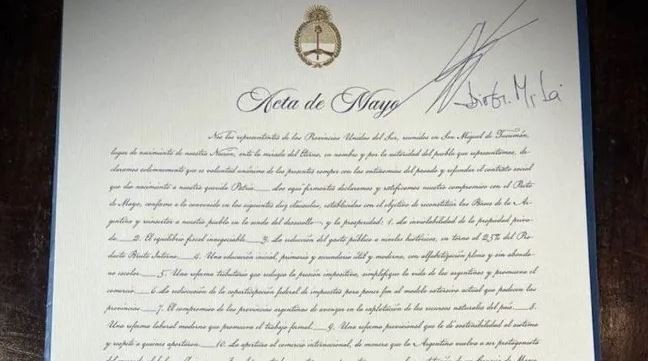 Acta de Mayo
Nos los representantes de las Provincias Unidas del Sur, reunidos en San Miguel de Tucumán,
lugar de nacimiento de nuestra Nación, ante la mirada del Eterno, en nombre y por la autoridad del pueblo que representamos, de-
claramos solemnemente que es voluntad unánime de los presentes romper con las antinomias del pasado y refundar el contrato social
que dio nacimiento a nuestra querida Patria. Los aquí firmantes declaramos y ratificamos nuestro compromiso con el Pacto
de Mayo, conforme a lo convenido en las siguientes diez cláusulas, establecidas con el objetivo de reconstituir las Bases de la Ar-
gentina y reinsertar a nuestro pueblo en la senda del desarrollo y la prosperidad: 1. La inviolabilidad de la propiedad priva-
da. 2. El equilibrio fiscal innegociable. 3. La reducción del gasto público a niveles históricos, en torno al 25% del Pro-
ducto Bruto Interno. 4. Una educación inicial, primaria y secundaria útil y moderna, con alfabetización plena y sin abando-
no escolar. 5. Una reforma tributaria que reduzca la presión impositiva, simplifique la vida de los argentinos y promueva el
comercio. 6. La rediscusión de la coparticipación federal de impuestos para poner fin al modelo extorsivo actual que padecen las
provincias. 7. El compromiso de las provincias argentinas de avanzar en la explotación de los recursos naturales del país. 8.
Una reforma laboral moderna que promueva el trabajo formal. 9. Una reforma previsional que le dé sostenibilidad al sistema
y respete a quienes aportaron. 10. La apertura al comercio internacional, de manera que la Argentina vuelva a ser protagonista